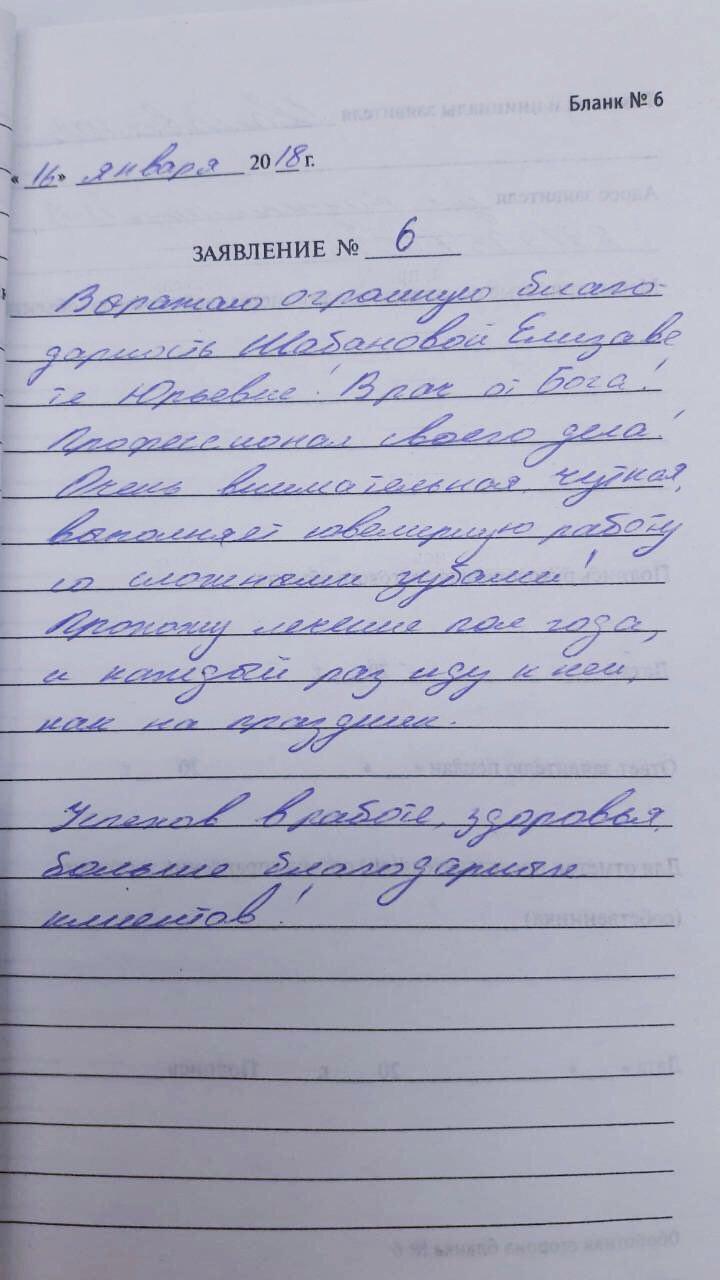 Бланк № 6
«16» января 2018 г.
ЗАЯВЛЕНИЕ № 6
Выражаю огромную благо-
дарность Шабановой Елизаве
те Юрьевне! Врач от Бога!
Профессионал своего дела!
Очень внимательная, чуткая,
выполняет ювелирную работу
со сложными зубами!
Прохожу лечение пол года,
и каждый раз иду к ней,
как на праздник.
Успехов в работе, здоровья,
больше благодарных
клиентов!